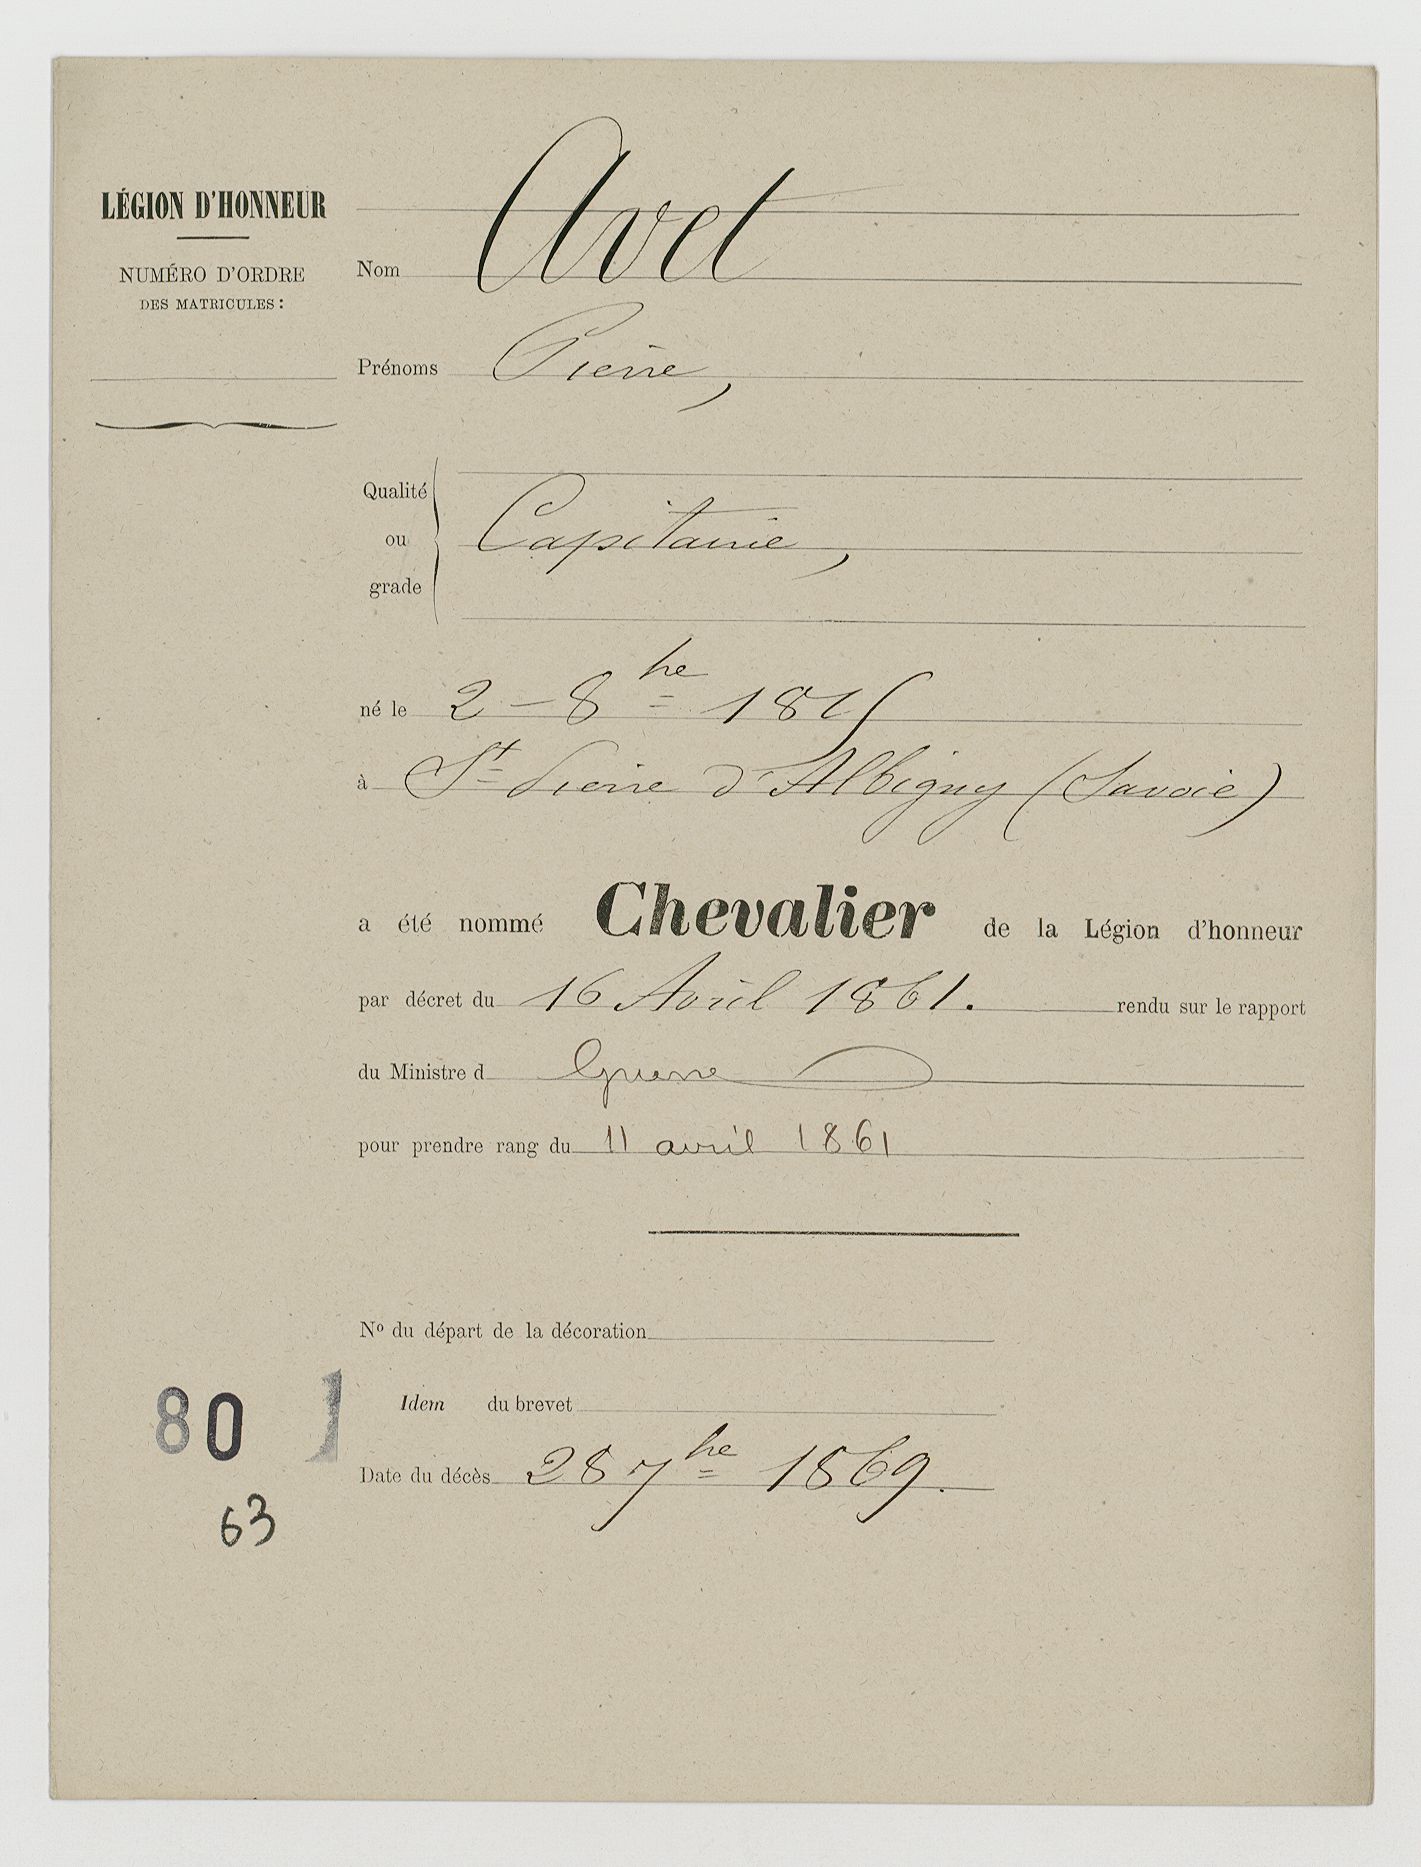 LÉGION D'HONNEUR
NUMÉRO D'ORDRE
DES MATRICULES :
Nom Avet
Prénoms Pierre,
Qualité
ou
grade
Capitaine,
né le 2 - 8bre 1815
à St Pierre d'Albigny (Savoie)
a été nommé Chevalier de la Légion d'honneur
par décret du 16 Avril 1861. rendu sur le rapport
du Ministre d Guerre
pour prendre rang du 11 avril 1861
No du départ de la décoration
Idem du brevet
80 1
Date du décès 28 7bre 1869.
63